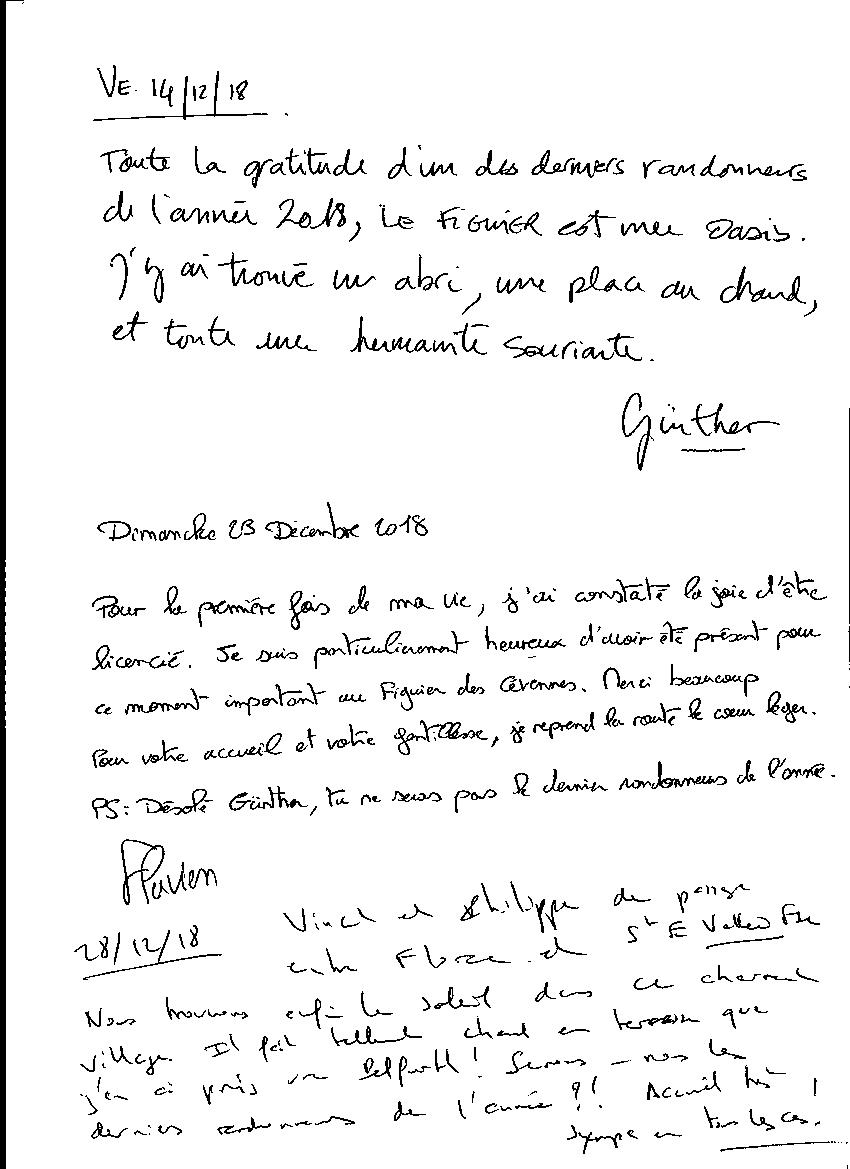 VE. 14/12/18
Toute la gratitude d'un des derniers randonneurs
de l'année 2018, LE FIGUIER est une oasis.
J'y ai trouvé un abri, une place au chaud,
et toute une humanité souriante.
Günther
Dimanche 23 Décembre 2018
Pour la première fois de ma vie, j'ai constaté la joie d'être
licencié. Je suis particulièrement heureux d'avoir été présent pour
ce moment important au Figuier des Cévennes. Merci beaucoup
Pour votre accueil et votre gentillesse, je reprend la route le cœur léger.
PS: Désolé Günther, tu ne seras pas le dernier randonneurs de l'année.
28/12/18
et Philippe de passage
entre Florac et St E Vallée Fse
Nous trouvons enfin le soleil dans ce charmant
village. Il fait tellement chaud en terrasse que
j'en ai pris un ! Serons-nous les
derniers randonneurs de l'année ?! Accueil très
sympa en tous les cas!